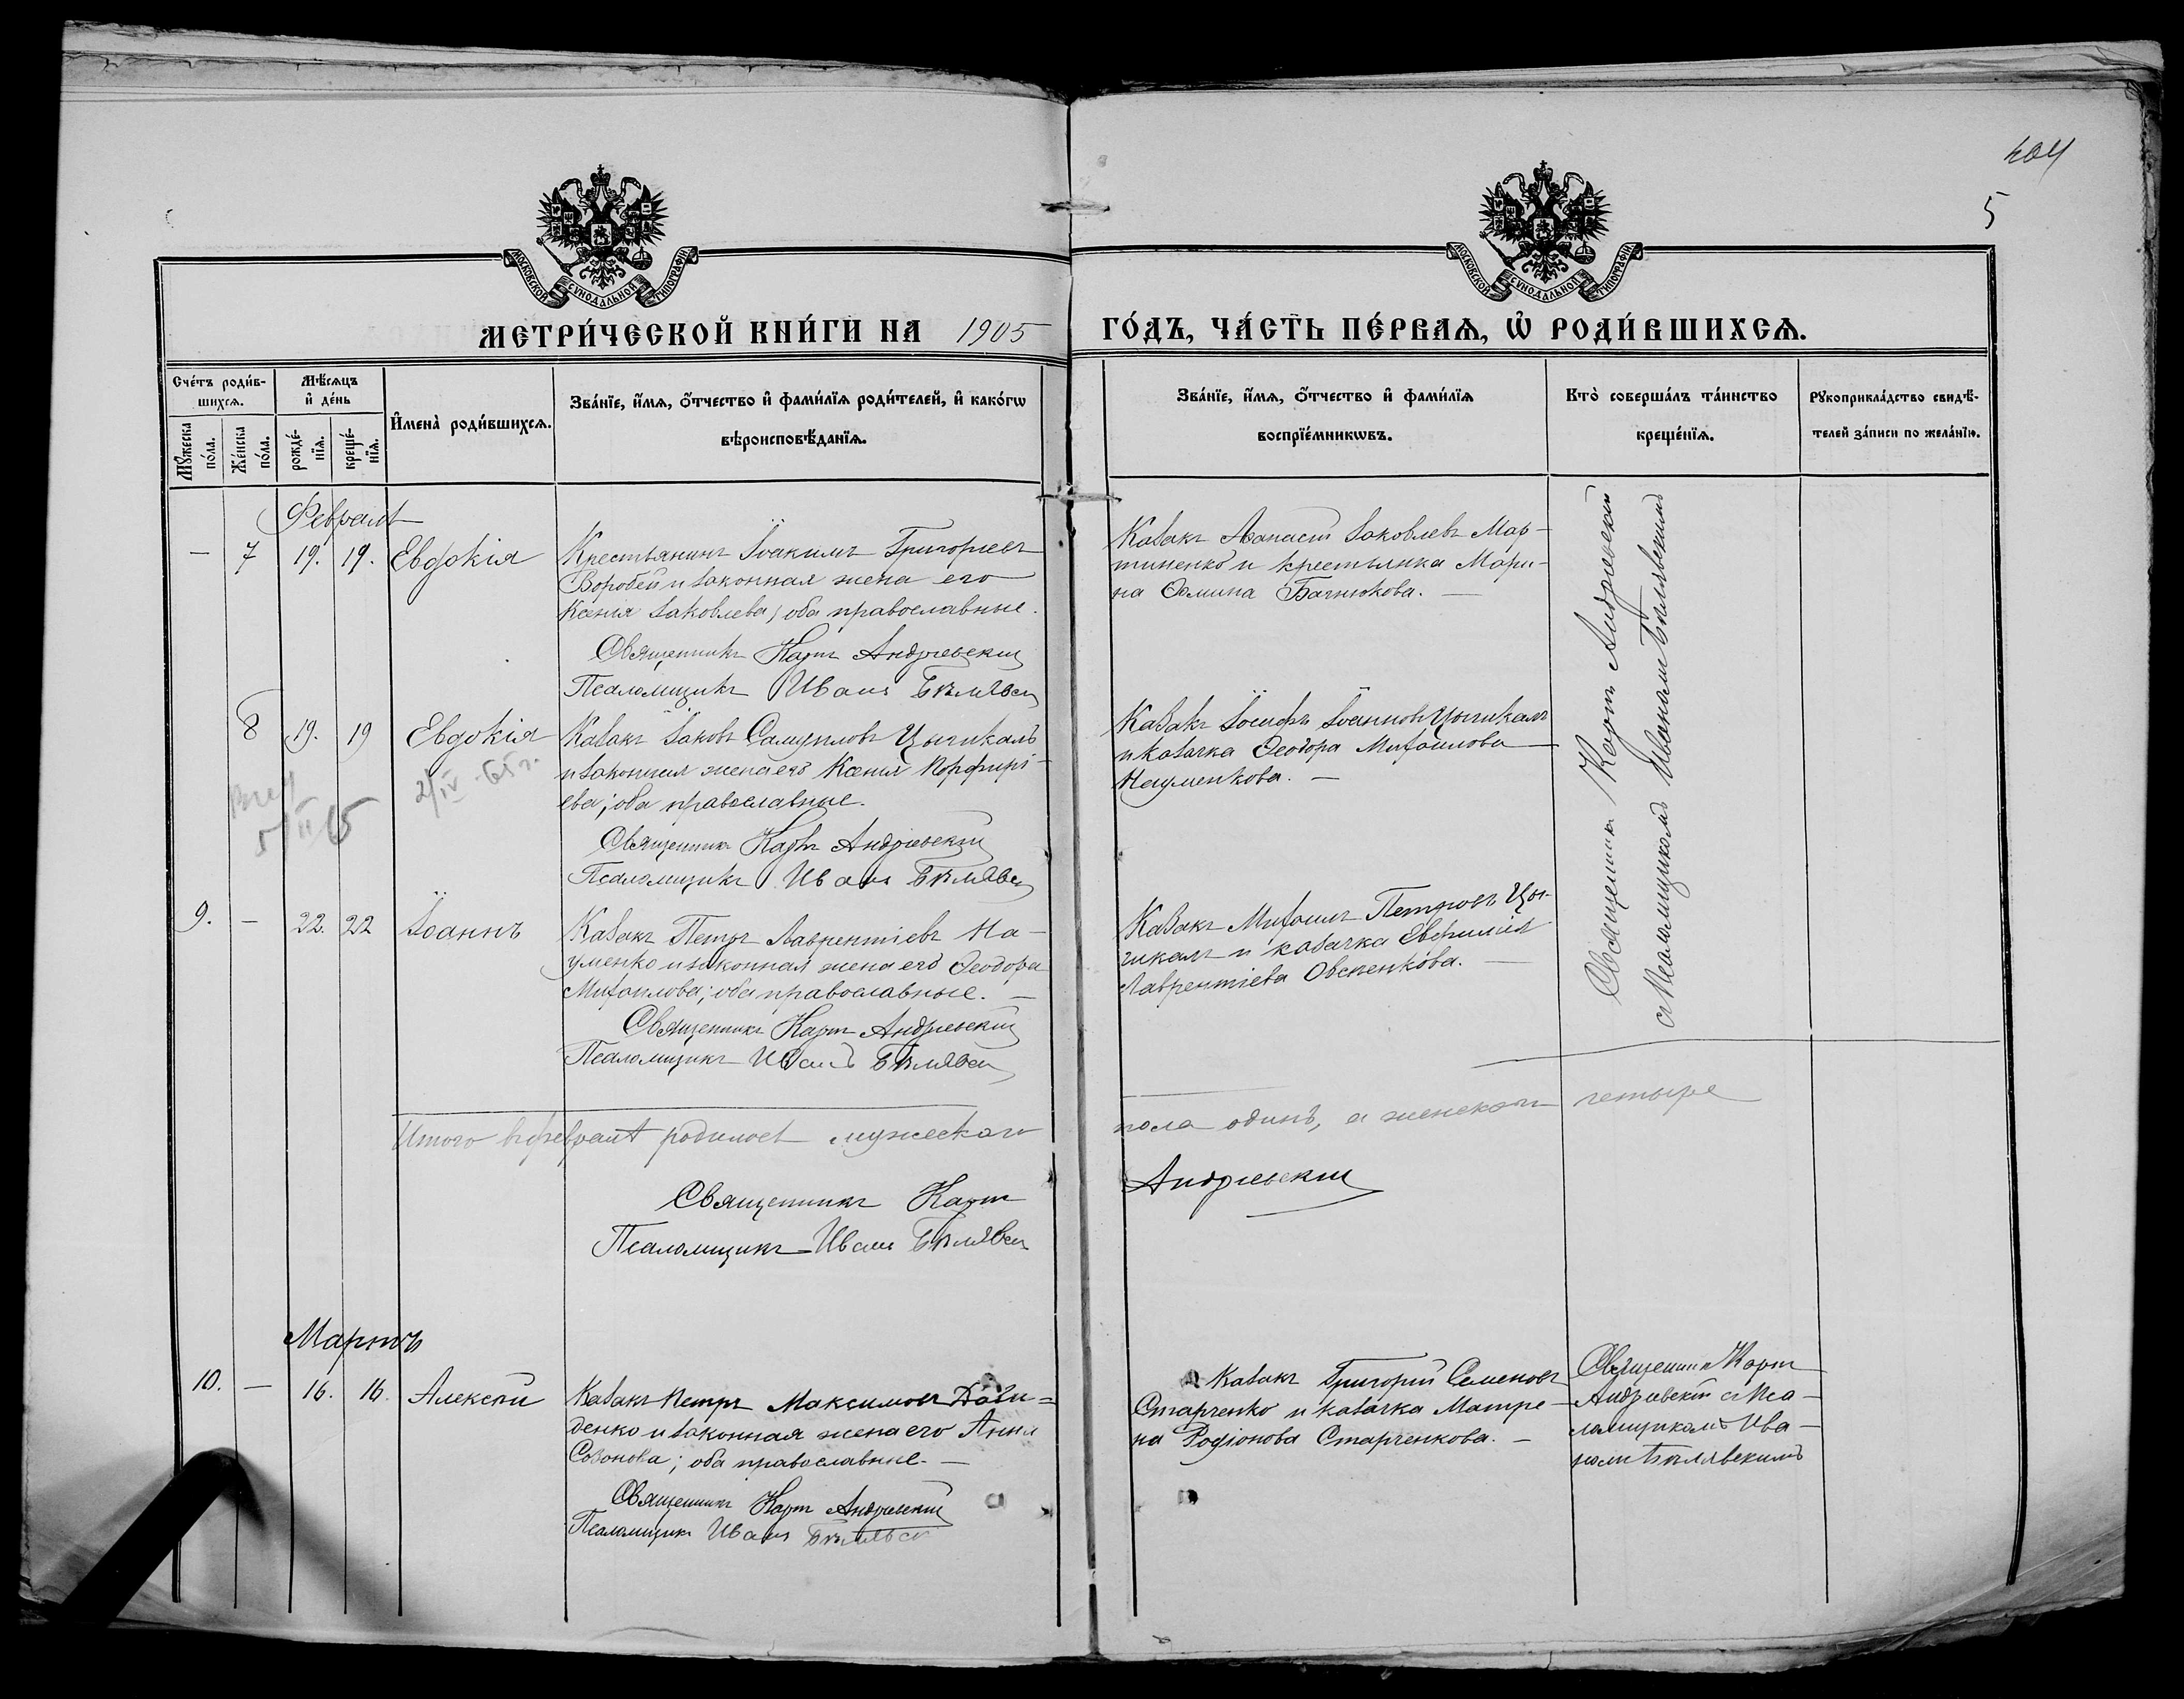 404
5
МОСКОВСКОЙ СѴНОДАЛЬНОЙ ТИПОГРАФІИ
МОСКОВСКОЙ СѴНОДАЛЬНОЙ ТИПОГРАФІИ
МЕТРИ́ЧЕСКОЙ КНИ́ГИ НА 1905 ГО́ДЪ, ЧА́СТЬ ПЕ́РВАѦ, Ѽ РОДИ́ВШИХСѦ.
Сче́тъ роди́в-
шихсѧ.
Мꙋ́жеска
по́ла.
Же́нска
по́ла.
Мѣ́сѧцъ
и҆ де́нь
рожде́-
нїѧ.
креще́-
нїѧ.
И҆мена̀ роди́вшихсѧ.
Зва́нїе, и҆́мѧ, ѻ҆́тчество и҆ фами́лїѧ роди́телей, и҆ како́гѡ
вѣроисповѣ́данїѧ.
Зва́нїе, и҆́мѧ, ѻ҆́тчество и҆ фами́лїѧ
воспрїе́мникѡвъ.
Кто̀ соверша́лъ та́инство
креще́нїѧ.
Рꙋкоприкла́дство свидѣ́-
телей за́писи по жела́нїю.
Февраль
— 7 19. 19. Евдокія
Крестьянинъ Іоакимъ Григоріевъ
Воробей и законная жена его
Ксенія Іаковлева; оба православные.
Священникъ Карпъ Андріевскій
Псаломщикъ Иванъ Бѣлявскій
Казакъ Аѳанасій Іаковлевъ Мар-
тиненко и крестьянка Мари-
на Ѳомина Багнюкова. —
8 19. 19 Евдокія
2/IV-65 г.
5/II 65
Казакъ Іаковъ Самуиловъ Цыгикалъ
и законная жена его Ксенія Порфирі-
ева; оба православные.
Священникъ Карпъ Андріевскій
Псаломщикъ Иванъ Бѣлявскій
Казакъ Іосифъ Іоанновъ Цыгикалъ
и казачка Ѳеодора Михаилова
Науменкова. —
9. — 22. 22 Іоаннъ
Казакъ Петръ Лаврентіевъ На-
уменко и законная жена его Ѳеодора
Михаилова; оба православные. —
Священникъ Карпъ Андріевскій
Псаломщикъ Иванъ Бѣлявскій
Казакъ Михаилъ Петровъ Цы-
гикалъ и казачка Евфимія
Лаврентіева Овсіенкова. —
Священникъ Карпъ Андріевскій
съ Псаломщикомъ Иваномъ Бѣлявскимъ
Итого въ февралѣ родилось мужескаго
пола одинъ, а женскаго четыре
Священникъ Карпъ Андріевскій
Псаломщикъ Иванъ Бѣлявскій
Мартъ
10. — 16. 16. Алексѣй
Казакъ Петръ Максимовъ Дави-
денко и законная жена его Анна
Созонова; оба православные. —
Священникъ Карпъ Андріевскій
Псаломщикъ Иванъ Бѣлявск
Казакъ Григорій Семеновъ
Старченко и казачка Матро-
на Родіонова Старченкова. —
Священникъ Карпъ
Андріевскій съ Пса-
ломщикомъ Ива-
номъ Бѣлявскимъ